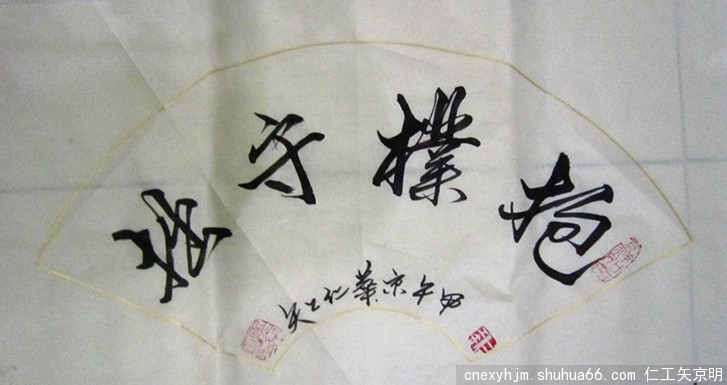 抱樸守拙
甲午京華仁工矢
cnexyhjm.shuhua66.com 仁工矢京明